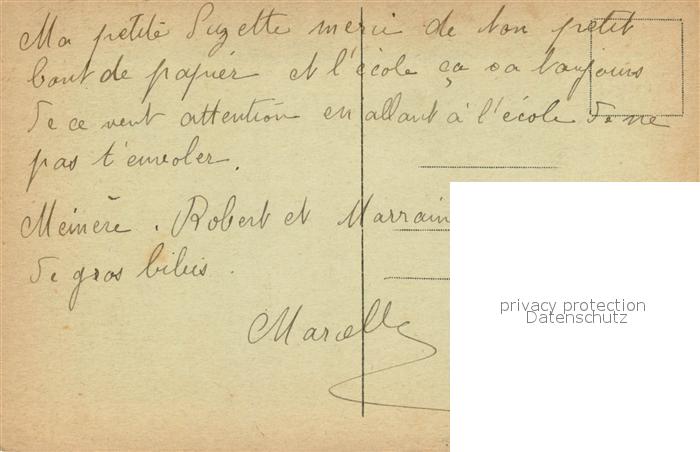 Ma petite Suzette merci de ton petit
bout de papier et l'école ça va toujours
De ce vent attention en allant à l'école De ne
pas t'envoler.
Mémère. Robert et Marrain
De gros bibis.
Marcelle
privacy protection
Datenschutz